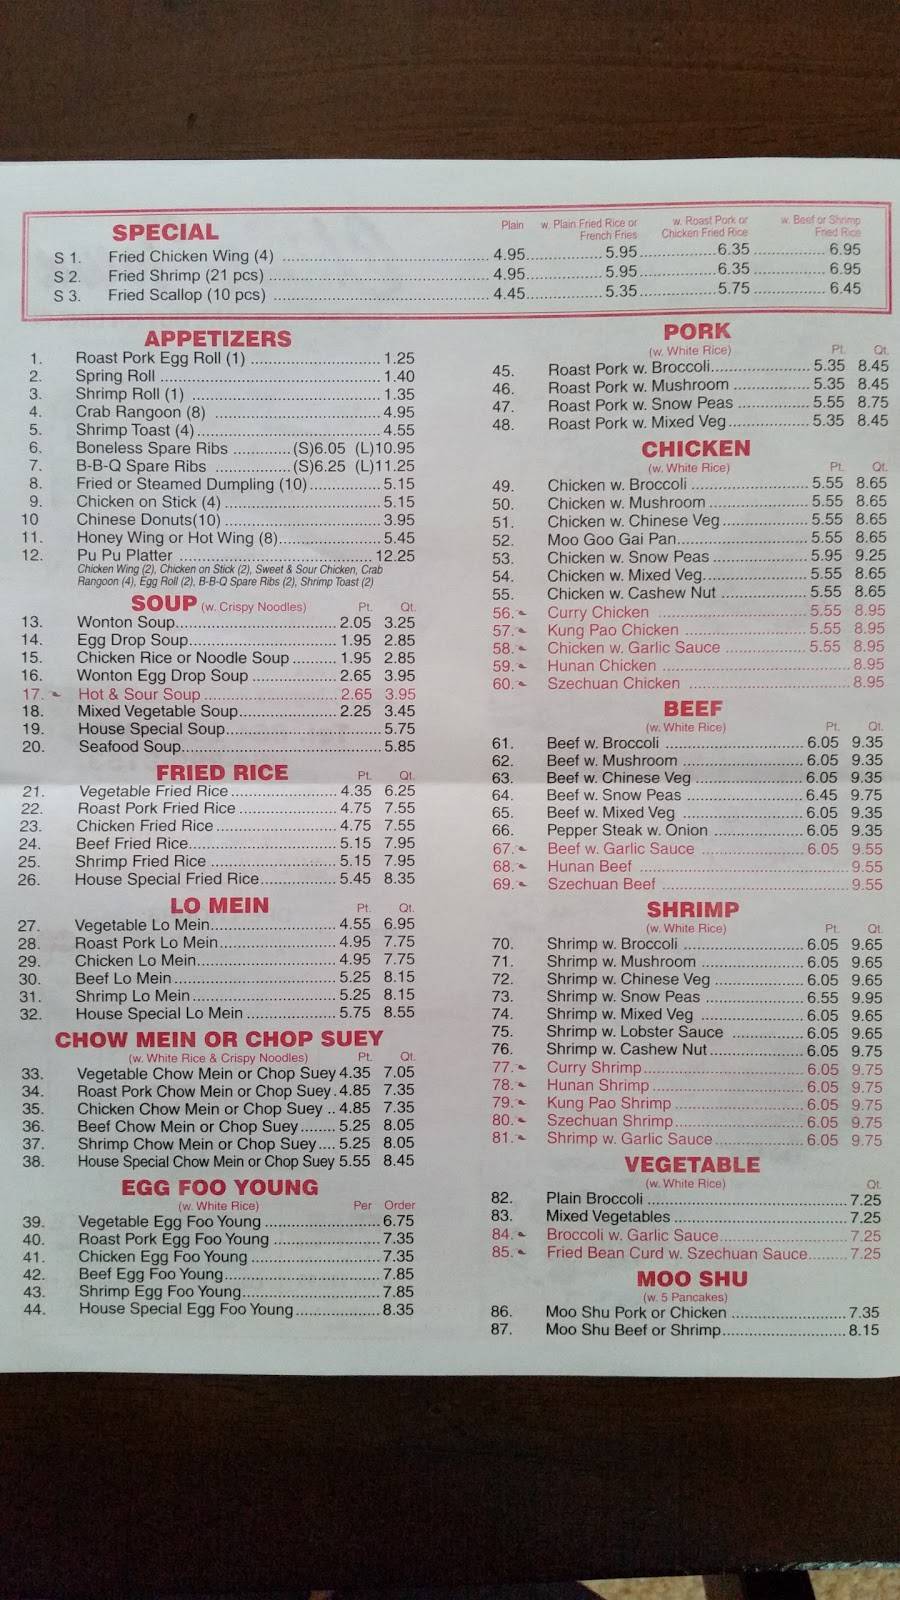 SPECIAL Plain w. Plain Fried Rice or French Fries w. Roast Pork or Chicken Fried Rice w. Beef or Shrimp Fried Rice
S 1. Fried Chicken Wing (4) 4.95 5.95 6.35 6.95
S 2. Fried Shrimp (21 pcs) 4.95 5.95 6.35 6.95
S 3. Fried Scallop (10 pcs) 4.45 5.35 5.75 6.45
APPETIZERS
1. Roast Pork Egg Roll (1) 1.25
2. Spring Roll 1.40
3. Shrimp Roll (1) 1.35
4. Crab Rangoon (8) 4.95
5. Shrimp Toast (4) 4.55
6. Boneless Spare Ribs (S)6.05 (L)10.95
7. B-B-Q Spare Ribs (S)6.25 (L)11.25
8. Fried or Steamed Dumpling (10) 5.15
9. Chicken on Stick (4) 5.15
10 Chinese Donuts(10) 3.95
11. Honey Wing or Hot Wing (8) 5.45
12. Pu Pu Platter 12.25
Chicken Wing (2), Chicken on Stick (2), Sweet & Sour Chicken, Crab
Rangoon (4), Egg Roll (2), B-B-Q Spare Ribs (2), Shrimp Toast (2)
SOUP (w. Crispy Noodles) Pt. Qt.
13. Wonton Soup 2.05 3.25
14. Egg Drop Soup 1.95 2.85
15. Chicken Rice or Noodle Soup 1.95 2.85
16. Wonton Egg Drop Soup 2.65 3.95
17. Hot & Sour Soup 2.65 3.95
18. Mixed Vegetable Soup 2.25 3.45
19. House Special Soup 5.75
20. Seafood Soup 5.85
FRIED RICE Pt. Qt.
21. Vegetable Fried Rice 4.35 6.25
22. Roast Pork Fried Rice 4.75 7.55
23. Chicken Fried Rice 4.75 7.55
24. Beef Fried Rice 5.15 7.95
25. Shrimp Fried Rice 5.15 7.95
26. House Special Fried Rice 5.45 8.35
LO MEIN Pt. Qt.
27. Vegetable Lo Mein 4.55 6.95
28. Roast Pork Lo Mein 4.95 7.75
29. Chicken Lo Mein 4.95 7.75
30. Beef Lo Mein 5.25 8.15
31. Shrimp Lo Mein 5.25 8.15
32. House Special Lo Mein 5.75 8.55
CHOW MEIN OR CHOP SUEY
(w. White Rice & Crispy Noodles) Pt. Qt.
33. Vegetable Chow Mein or Chop Suey 4.35 7.05
34. Roast Pork Chow Mein or Chop Suey 4.85 7.35
35. Chicken Chow Mein or Chop Suey 4.85 7.35
36. Beef Chow Mein or Chop Suey 5.25 8.05
37. Shrimp Chow Mein or Chop Suey 5.25 8.05
38. House Special Chow Mein or Chop Suey 5.55 8.45
EGG FOO YOUNG
(w. White Rice) Per Order
39. Vegetable Egg Foo Young 6.75
40. Roast Pork Egg Foo Young 7.35
41. Chicken Egg Foo Young 7.35
42. Beef Egg Foo Young 7.85
43. Shrimp Egg Foo Young 7.85
44. House Special Egg Foo Young 8.35
PORK
(w. White Rice) Pt. Qt.
45. Roast Pork w. Broccoli 5.35 8.45
46. Roast Pork w. Mushroom 5.35 8.45
47. Roast Pork w. Snow Peas 5.55 8.75
48. Roast Pork w. Mixed Veg 5.35 8.45
CHICKEN
(w. White Rice) Pt. Qt.
49. Chicken w. Broccoli 5.55 8.65
50. Chicken w. Mushroom 5.55 8.65
51. Chicken w. Chinese Veg 5.55 8.65
52. Moo Goo Gai Pan 5.55 8.65
53. Chicken w. Snow Peas 5.95 9.25
54. Chicken w. Mixed Veg. 5.55 8.65
55. Chicken w. Cashew Nut 5.55 8.65
56. Curry Chicken 5.55 8.95
57. Kung Pao Chicken 5.55 8.95
58. Chicken w. Garlic Sauce 5.55 8.95
59. Hunan Chicken 8.95
60. Szechuan Chicken 8.95
BEEF
(w. White Rice) Pt. Qt.
61. Beef w. Broccoli 6.05 9.35
62. Beef w. Mushroom 6.05 9.35
63. Beef w. Chinese Veg 6.05 9.35
64. Beef w. Snow Peas 6.45 9.75
65. Beef w. Mixed Veg 6.05 9.35
66. Pepper Steak w. Onion 6.05 9.35
67. Beef w. Garlic Sauce 6.05 9.55
68. Hunan Beef 9.55
69. Szechuan Beef 9.55
SHRIMP
(w. White Rice) Pt. Qt.
70. Shrimp w. Broccoli 6.05 9.65
71. Shrimp w. Mushroom 6.05 9.65
72. Shrimp w. Chinese Veg 6.05 9.65
73. Shrimp w. Snow Peas 6.55 9.95
74. Shrimp w. Mixed Veg 6.05 9.65
75. Shrimp w. Lobster Sauce 6.05 9.65
76. Shrimp w. Cashew Nut 6.05 9.75
77. Curry Shrimp 6.05 9.75
78. Hunan Shrimp 6.05 9.75
79. Kung Pao Shrimp 6.05 9.75
80. Szechuan Shrimp 6.05 9.75
81. Shrimp w. Garlic Sauce 6.05 9.75
VEGETABLE
(w. White Rice) Qt.
82. Plain Broccoli 7.25
83. Mixed Vegetables 7.25
84. Broccoli w. Garlic Sauce 7.25
85. Fried Bean Curd w. Szechuan Sauce 7.25
MOO SHU
(w. 5 Pancakes)
86. Moo Shu Pork or Chicken 7.35
87. Moo Shu Beef or Shrimp 8.15